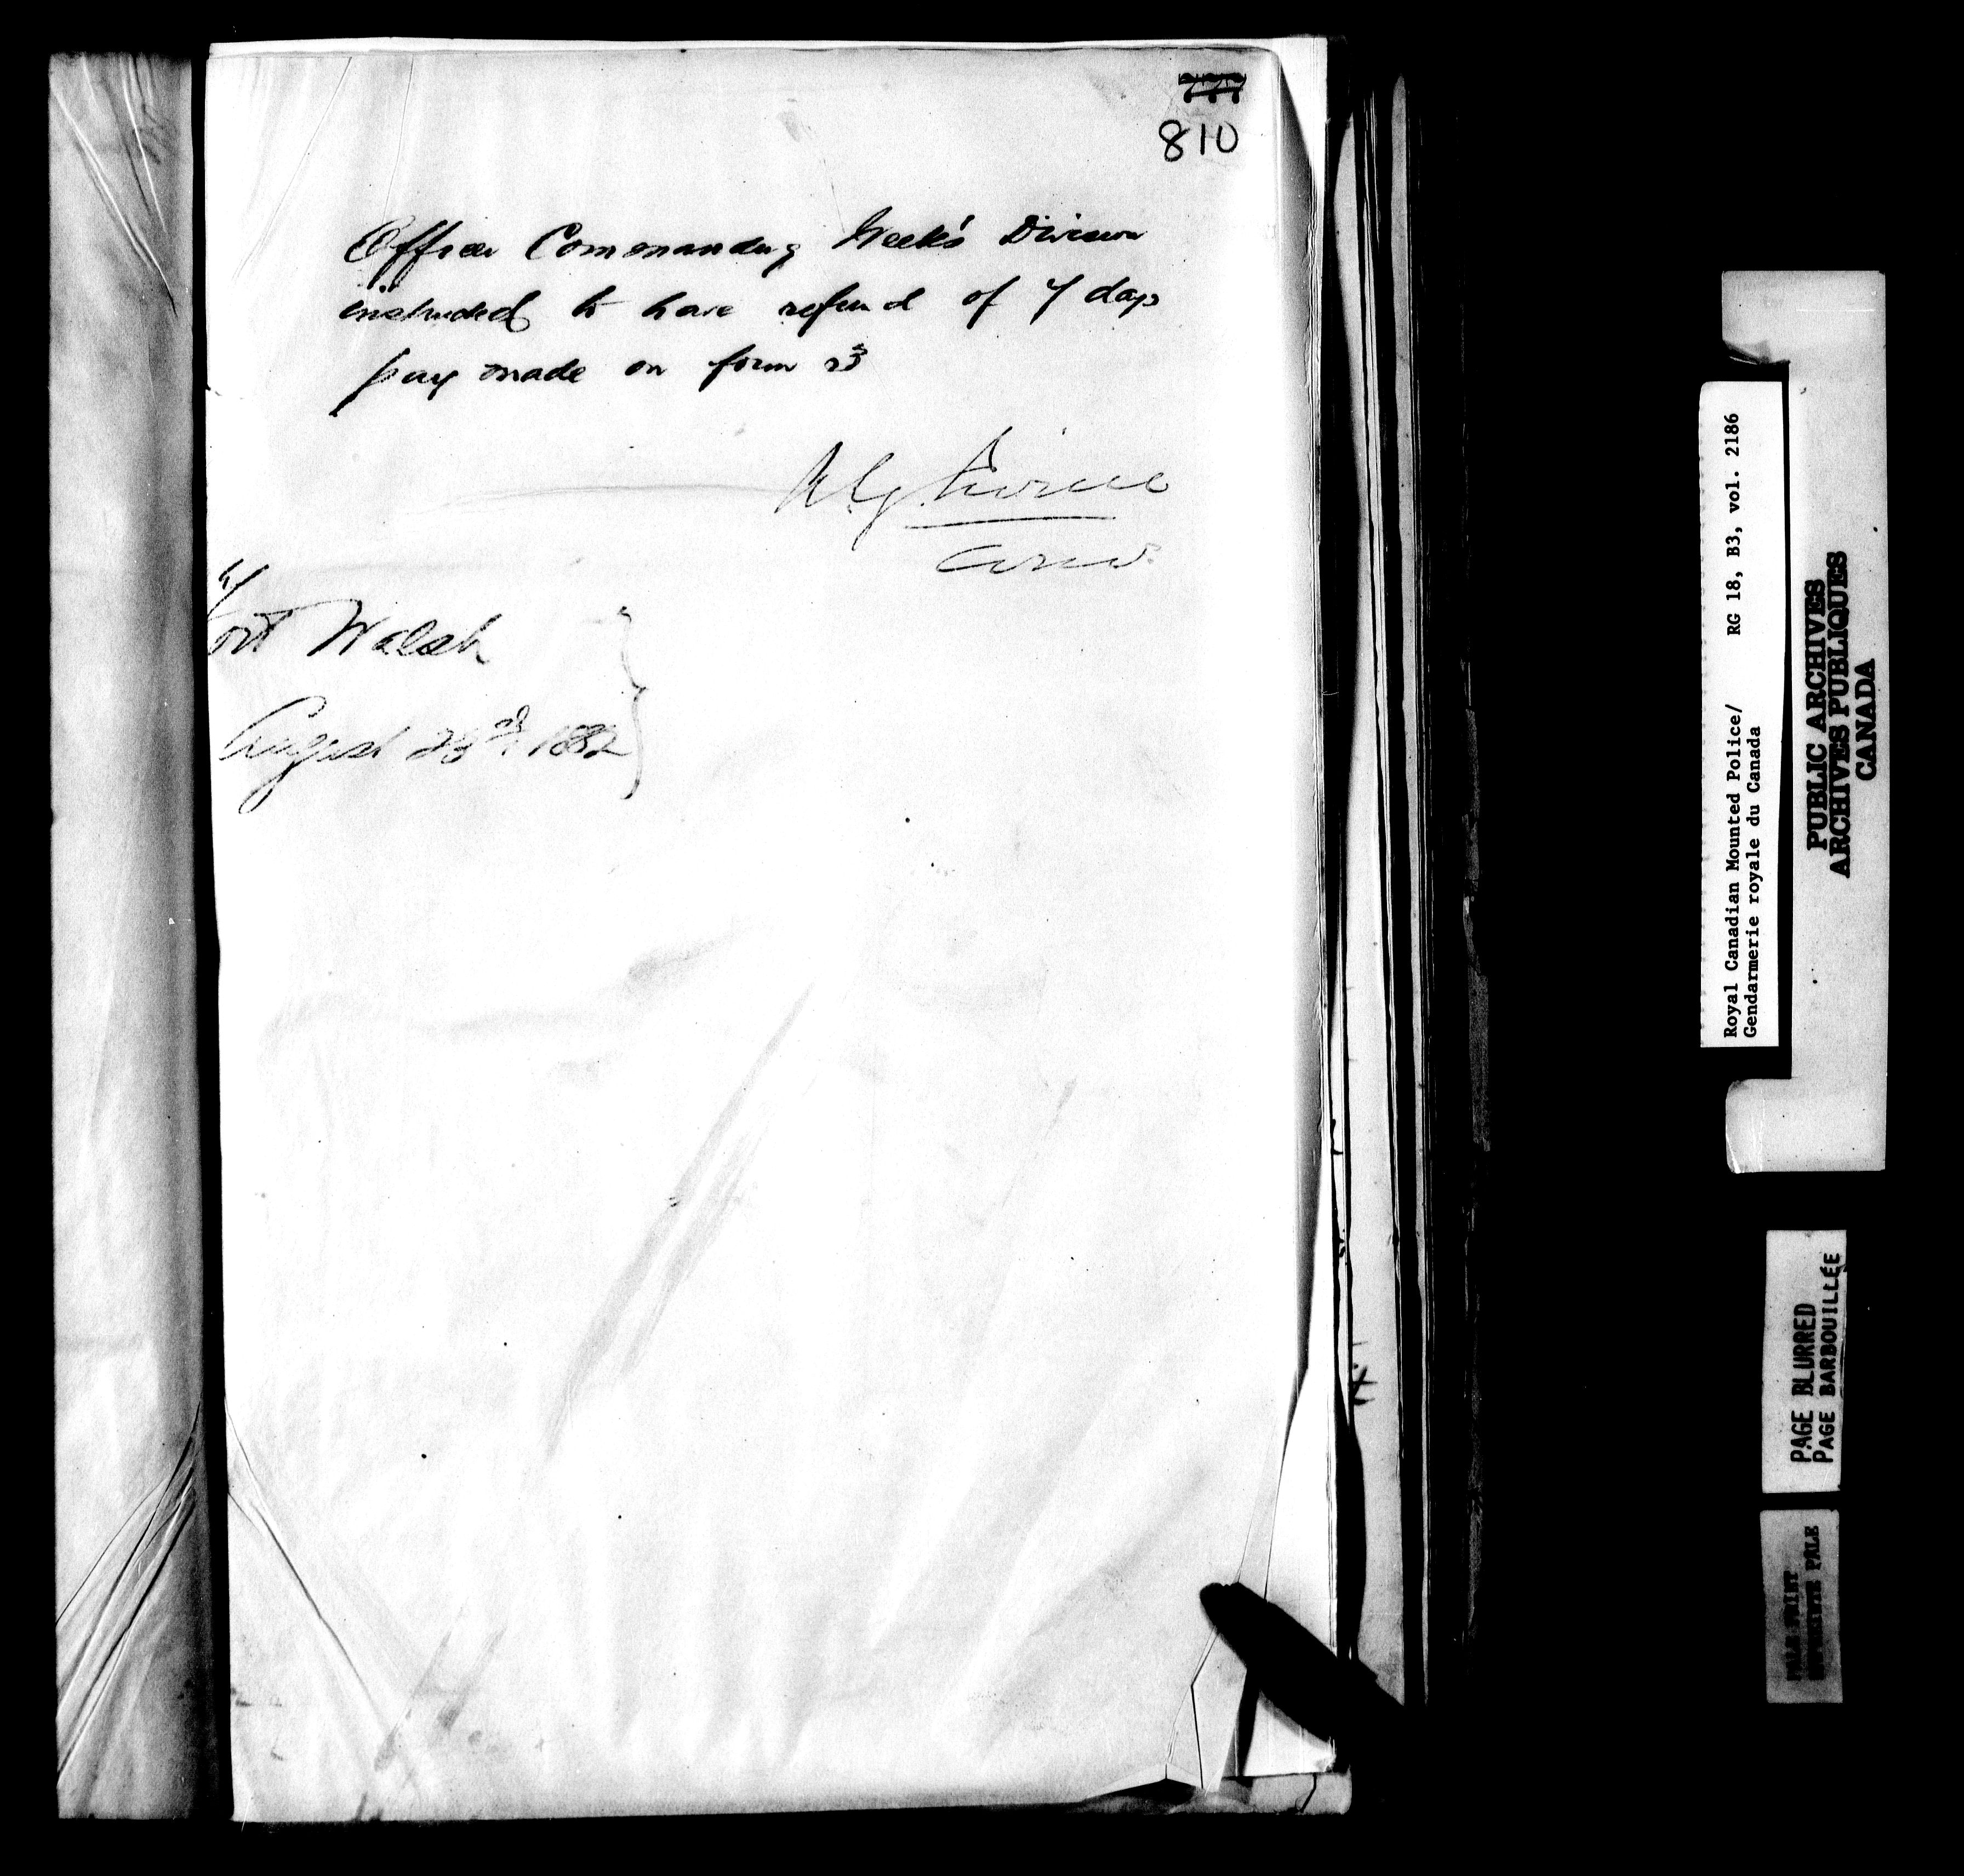 777
810
Officer Commanding Week's Division
instructed to have refund of 7 days
pay made on form 23
A.G. Irvine
Com.
Fort Walsh
August 23rd, 1882
Royal Canadian Mounted Police/ RG 18, B3, vol. 2186
Gendarmerie royale du Canada
PUBLIC ARCHIVES
ARCHIVES PUBLIQUES
CANADA
PAGE BLURRED
PAGE BARBOUILLÉE
PALE PRINT
PALE